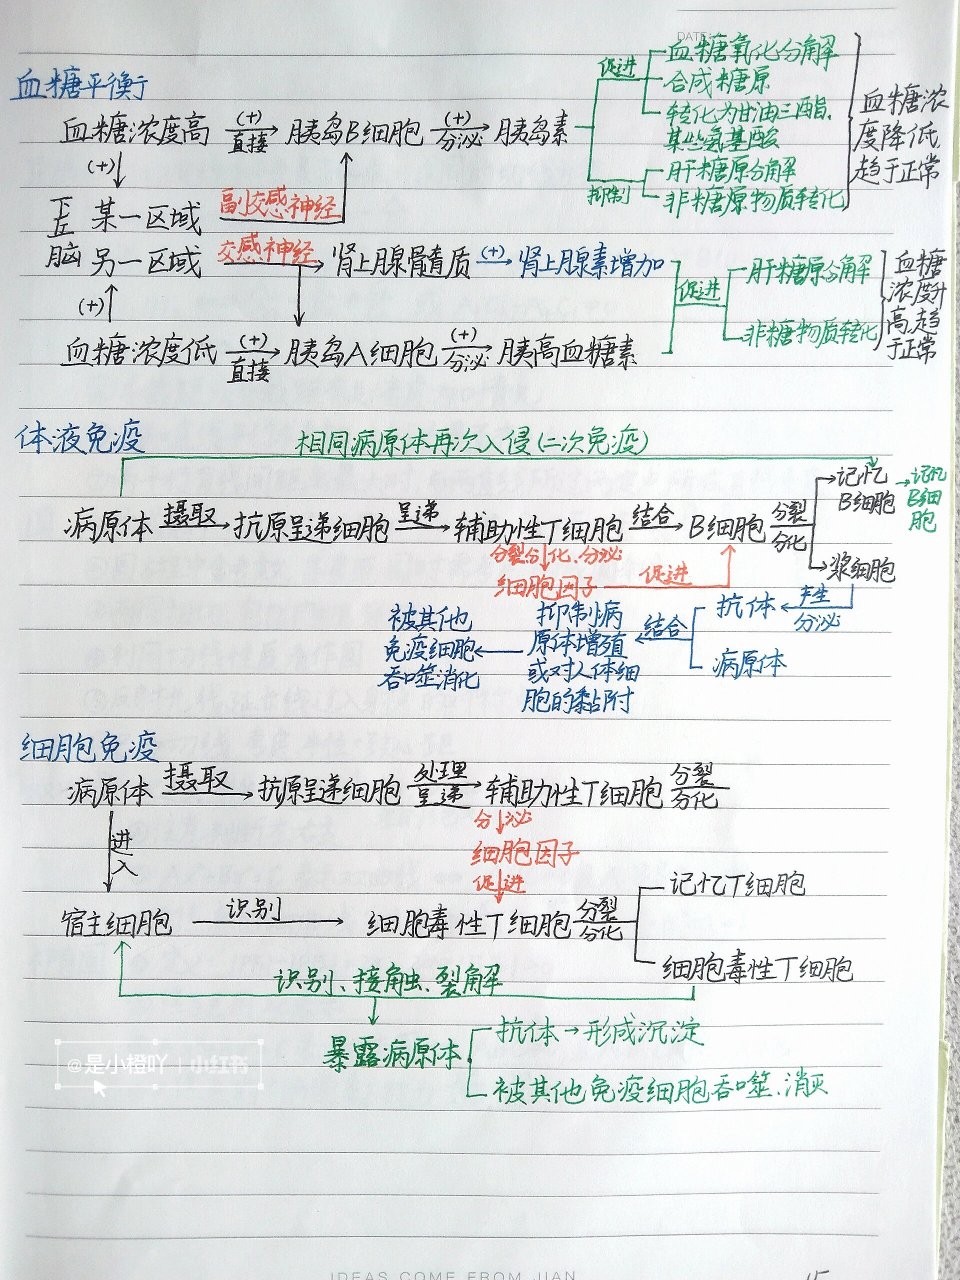 DATE
血糖平衡
促进 血糖氧化分解
合成糖原
转化为甘油三酯、
某些氨基酸
血糖浓度高 (+) 直接 胰岛B细胞 (+) 分泌 胰岛素
抑制 肝糖原分解
非糖原物质转化
血糖浓
度降低,
趋于正常
(+)
下丘脑
某一区域 副交感神经
另一区域 交感神经 肾上腺髓质 (+) 肾上腺素增加
(+)
血糖浓度低 (+) 直接 胰岛A细胞 (+) 分泌 胰高血糖素
促进 肝糖原分解
非糖物质转化
血糖
浓度升
高,趋
于正常
体液免疫
相同病原体再次入侵(二次免疫)
病原体 摄取 抗原呈递细胞 呈递 辅助性T细胞 结合 B细胞 分裂 分化
记忆
B细胞
记忆
B细
胞
浆细胞
分裂分化、分泌
细胞因子 促进
产生
分泌
抗体
病原体
结合
抑制病
原体增殖
或对人体细
胞的黏附
被其他
免疫细胞
吞噬消化
细胞免疫
病原体 摄取 抗原呈递细胞 处理 呈递 辅助性T细胞 分裂 分化
分泌
细胞因子
促进
进入
宿主细胞 识别 细胞毒性T细胞 分裂 分化
记忆T细胞
细胞毒性T细胞
识别、接触、裂解
暴露病原体
抗体→形成沉淀
被其他免疫细胞吞噬、消灭
@是小橙吖 | 小红书
IDEAS COME FROM JIAN